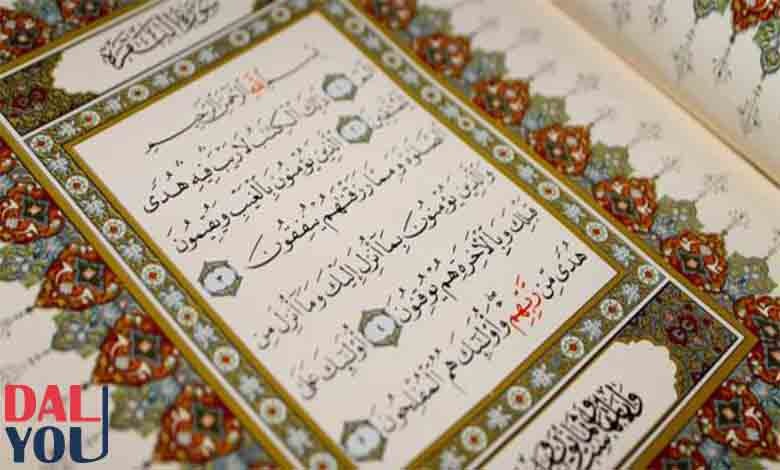 سورة البقرة
بسم الله الرحمن الرحيم
الم ۝١ ذلك الكتب لا ريب فيه هدى
للمتقين ۝٢ الذين يؤمنون بالغيب ويقيمون
الصلوة ومما رزقنهم ينفقون ۝٣
والذين يؤمنون بما أنزل إليك وما أنزل من
قبلك وبالأخرة هم يوقنون ۝٤ أولئك على
هدى من ربهم وأولئك هم المفلحون ۝٥
DAL
YOU